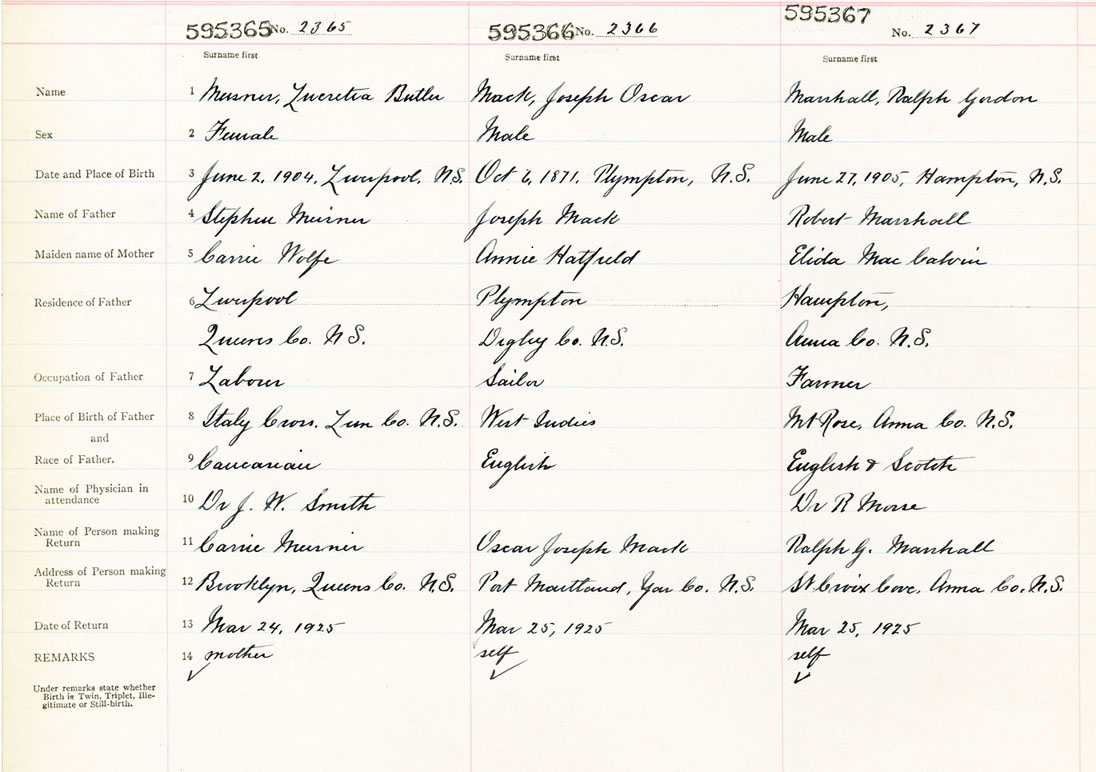 595365 No. 2365 595366 No. 2366 595367 No. 2367
Surname first Surname first Surname first
Name 1 Meisner, Lucretia Butler Mack, Joseph Oscar Marshall, Ralph Gordon
Sex 2 Female Male Male
Date and Place of Birth 3 June 2, 1904, Liverpool, N.S. Oct 6, 1871, Plympton, N.S. June 27, 1905, Hampton, N.S.
Name of Father 4 Stephen Meisner Joseph Mack Robert Marshall
Maiden name of Mother 5 Carrie Wolfe Annie Hatfield Elida Mac Calvin
Residence of Father 6 Liverpool Plympton Hampton,
Queens Co. N.S. Digby Co. N.S. Anna Co. N.S.
Occupation of Father 7 Labour Sailor Farmer
Place of Birth of Father 8 Italy Cross, Lun Co. N.S. West Indies Mt Rose, Anna Co. N.S.
and
Race of Father. 9 Caucasian English English & Scotch
Name of Physician in
attendance 10 Dr J. W. Smith Dr R Morse
Name of Person making
Return 11 Carrie Meisner Oscar Joseph Mack Ralph G. Marshall
Address of Person making
Return 12 Brooklyn, Queens Co. N.S. Port Maitland, Yar Co. N.S. St Croix Cove, Anna Co. N.S.
Date of Return 13 Mar 24, 1925 Mar 25, 1925 Mar 25, 1925
REMARKS 14 mother self self
Under remarks state whether
Birth is Twin, Triplet, Ille-
gitimate or Still-birth.